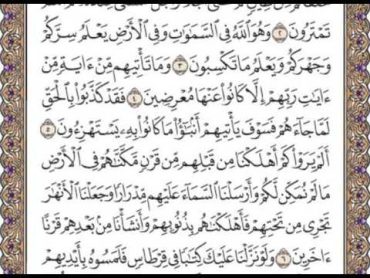 تَمْتَرُونَ ٢ وَهُوَ ٱللَّهُ فِى ٱلسَّمَٰوَٰتِ وَفِى ٱلْأَرْضِ يَعْلَمُ سِرَّكُمْ
وَجَهْرَكُمْ وَيَعْلَمُ مَا تَكْسِبُونَ ٣ وَمَا تَأْتِيهِم مِّنْ ءَايَةٍ مِّنْ
ءَايَٰتِ رَبِّهِمْ إِلَّا كَانُوا۟ عَنْهَا مُعْرِضِينَ ٤ فَقَدْ كَذَّبُوا۟ بِٱلْحَقِّ
لَمَّا جَآءَهُمْ فَسَوْفَ يَأْتِيهِمْ أَنۢبَٰٓؤُا۟ مَا كَانُوا۟ بِهِۦ يَسْتَهْزِءُونَ ٥
أَلَمْ يَرَوْا۟ كَمْ أَهْلَكْنَا مِن قَبْلِهِم مِّن قَرْنٍ مَّكَّنَّٰهُمْ فِى ٱلْأَرْضِ
مَا لَمْ نُمَكِّن لَّكُمْ وَأَرْسَلْنَا ٱلسَّمَآءَ عَلَيْهِم مِّدْرَارًا وَجَعَلْنَا ٱلْأَنْهَٰرَ
تَجْرِى مِن تَحْتِهِمْ فَأَهْلَكْنَٰهُم بِذُنُوبِهِمْ وَأَنشَأْنَا مِنۢ بَعْدِهِمْ قَرْنًا
ءَاخَرِينَ ٦ وَلَوْ نَزَّلْنَا عَلَيْكَ كِتَٰبًا فِى قِرْطَاسٍ فَلَمَسُوهُ بِأَيْدِيهِمْ